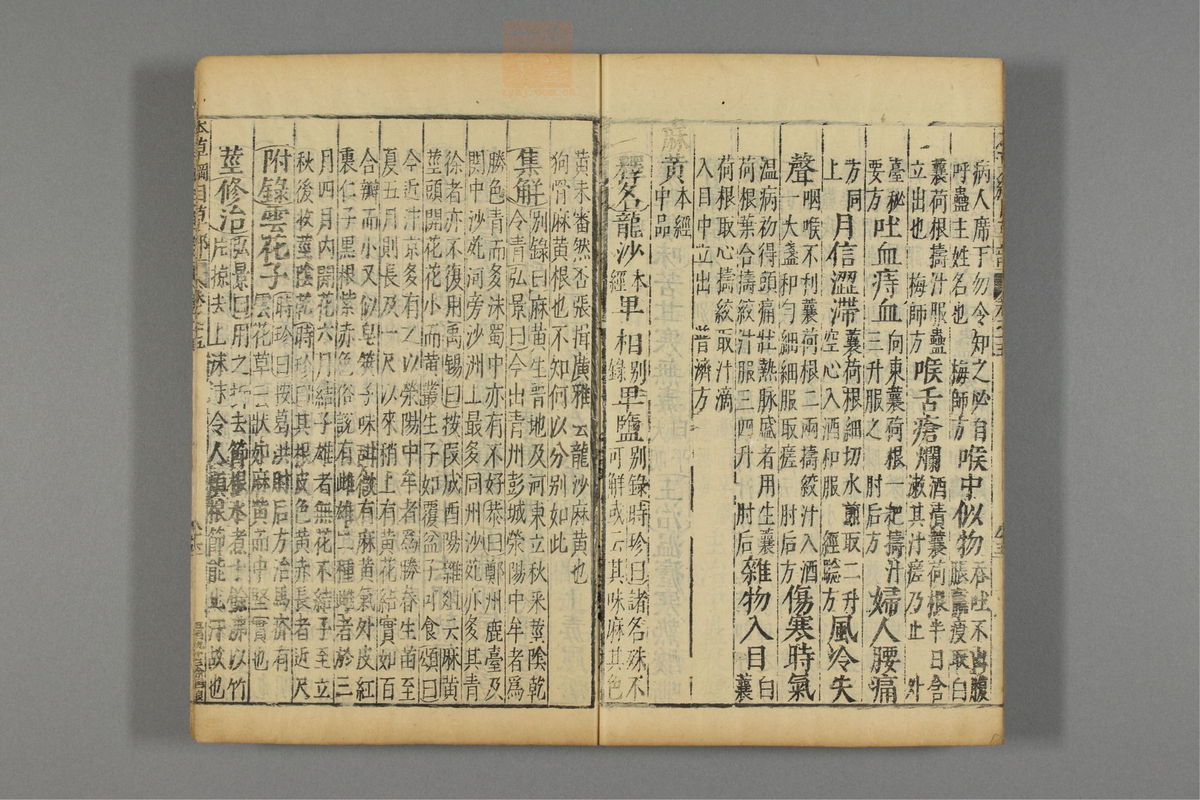 病人席下勿令知之必自 梅師方 喉中似物 吞吐不出腹
呼蠱主姓名也 脹羸瘦取白
蘘荷根擣汁服蠱 喉舌瘡爛 酒漬蘘荷根半日含
立出也 梅師方 漱其汁瘥乃止 外
臺秘 吐血痔血 向東蘘荷根一把擣汁 婦人腰痛
要方 三升服之 肘后方
方同 月信澀滯 蘘荷根細切水煎取二升 風冷失
上 空心入酒和服 經驗方
聲 咽喉不利蘘荷根二兩擣絞汁入酒 傷寒時氣
一大盞和勻細細服取瘥 肘后方
温病初得頭痛壯熱脉盛者用生蘘 雜物入目 白
荷根葉合擣絞汁服三四升 肘后 蘘
荷根取心擣絞取汁滴
入目中立出 普濟方
麻黄 本經
中品
釋名 龍沙 本經 卑相 别錄 卑鹽 别錄 時珍曰諸名殊不
可解或云其味麻其色
黄未審然否張揖廣雅云龍沙麻黄也
狗骨麻黄根也不知何以分别如此
集解 别錄曰麻黄生晋地及河東立秋采莖陰乾
令青 弘景曰今出青州彭城滎陽中牟者爲
勝色青而多沫蜀中亦有不好 恭曰鄭州鹿臺及
関中沙苑河旁沙洲上最多同州沙苑亦多其青
徐者亦不復用 禹錫曰按段成酉陽雜俎云麻黄
莖頭開花花小而黄叢生子如覆盆子可食 頌曰
今近汴京多有之以滎陽中牟者爲勝春生苗至
夏五月則長及一尺以來稍上有黄花結實如百
合瓣而小又似皂莢子味甜微有麻黄氣外皮紅
裏仁子黒根紫赤色俗説有雌雄二種雌者於三
月四月内開花六月結子雄者無花不結子至立
秋後收莖陰乾 時珍曰其根皮色黄赤長者近尺
附錄 雲花子 時珍曰按葛洪肘后方治馬疥有
雲花草云狀如麻黄而中堅實也
莖 修治 弘景曰用之折去節根水煮十餘沸以竹
片掠去上沫沫令人煩根節能止汗故也